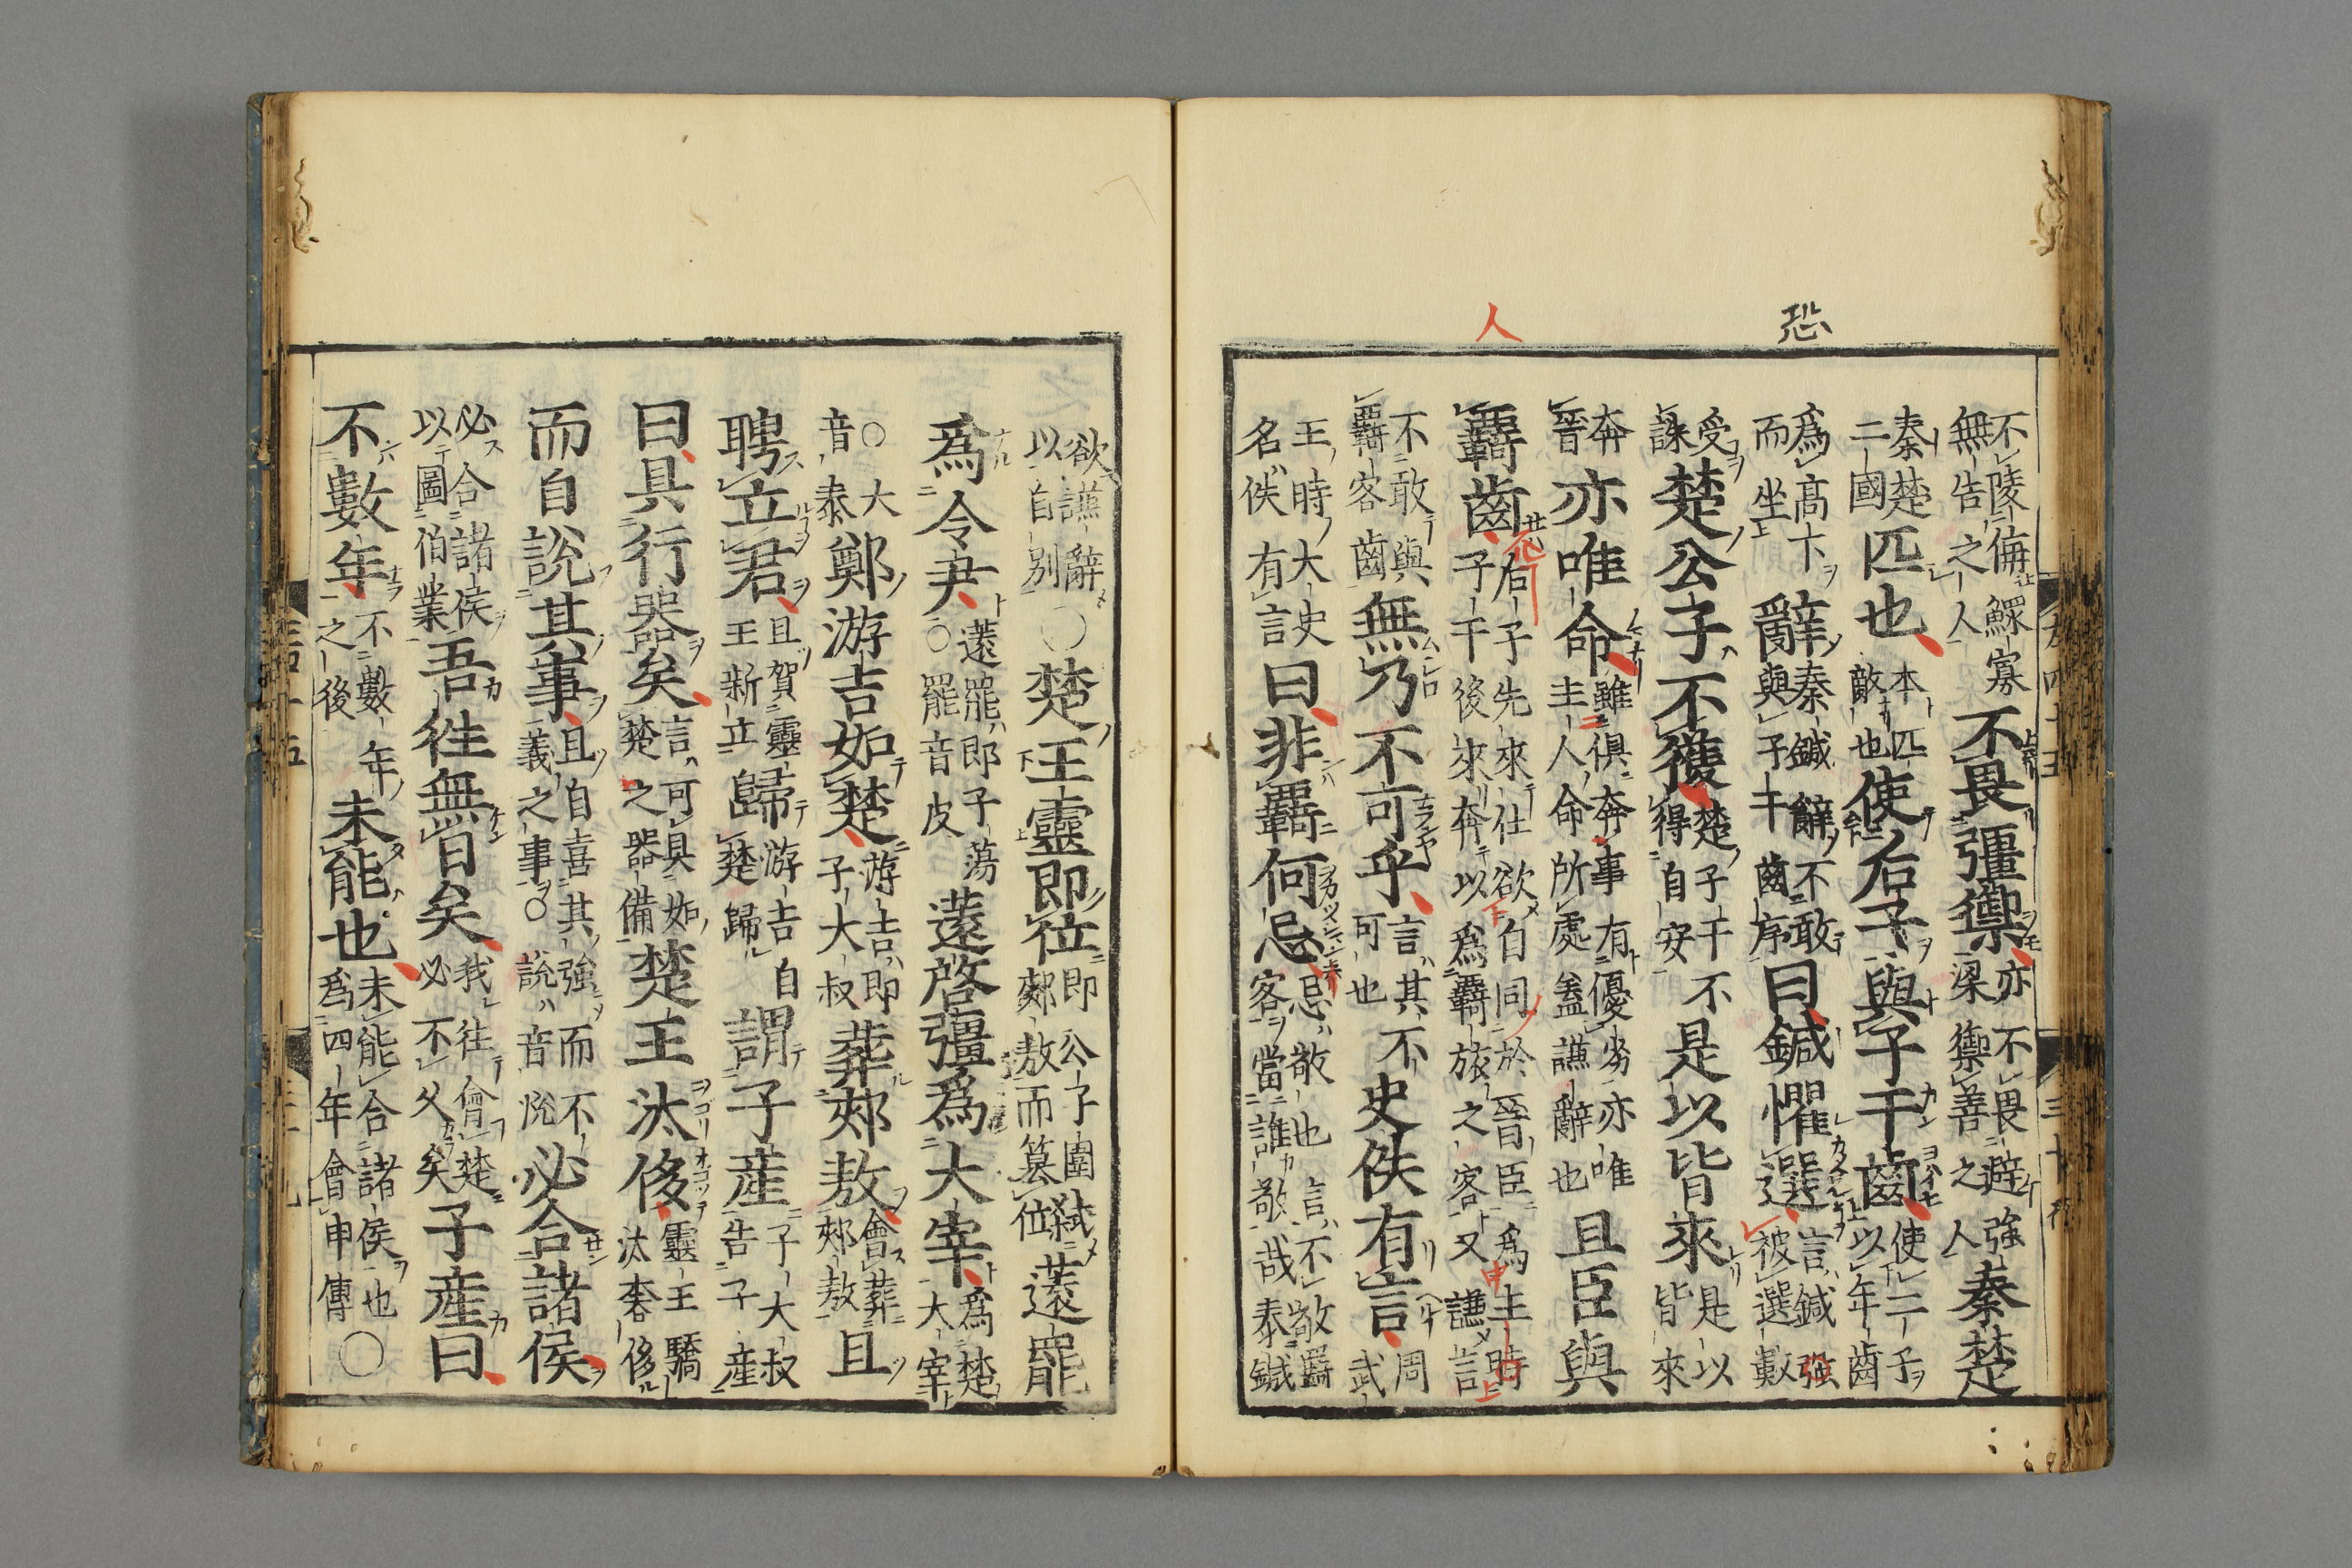 恐
人
不陵侮鰥寡無告之人不畏彊禦亦不畏避強梁禦善之人秦楚
秦楚二國匹也本匹敵也使后子與子干齒使二子以年齒
爲高卞而坐辭秦鍼辭不敢與子干齒序曰鍼懼選言鍼強被選數
受誅楚公子不獲楚子干不得自安是以皆來是以皆來
奔晉亦唯命雖俱奔事有優劣亦唯主人命所處盖謙辭也且臣與
羇齒后子先來仕欲自同於晉臣爲主時子干後來奔以爲羇旅之客又謙言
不敢與羇客齒無乃不可乎言其不可也史佚有言周武
王時大史名佚有言曰非羇何忌忌敬也言不敬羇客當誰敬哉秦鍼
欲謙辭以自别○楚王靈即位即公子圍弑郟敖而簒位薳罷
爲令尹薳罷即子蕩○罷音皮薳啓彊爲大宰爲楚大宰
○大音泰鄭游吉如楚游吉即子大叔葬郟敖會葬郟敖且
聘立君且賀靈王新立歸游吉自楚歸謂子産子大叔告子産
曰具行器矣言可具如楚之器備楚王汰侈靈王驕汰奢侈
而自説其事且自喜其強而不義之事○説音悦必合諸侯
必合諸侯以圖伯業吾徃無日矣我往會楚必不久矣子産曰
不數年不數年之後未能也未能合諸侯也爲四年會申傳○